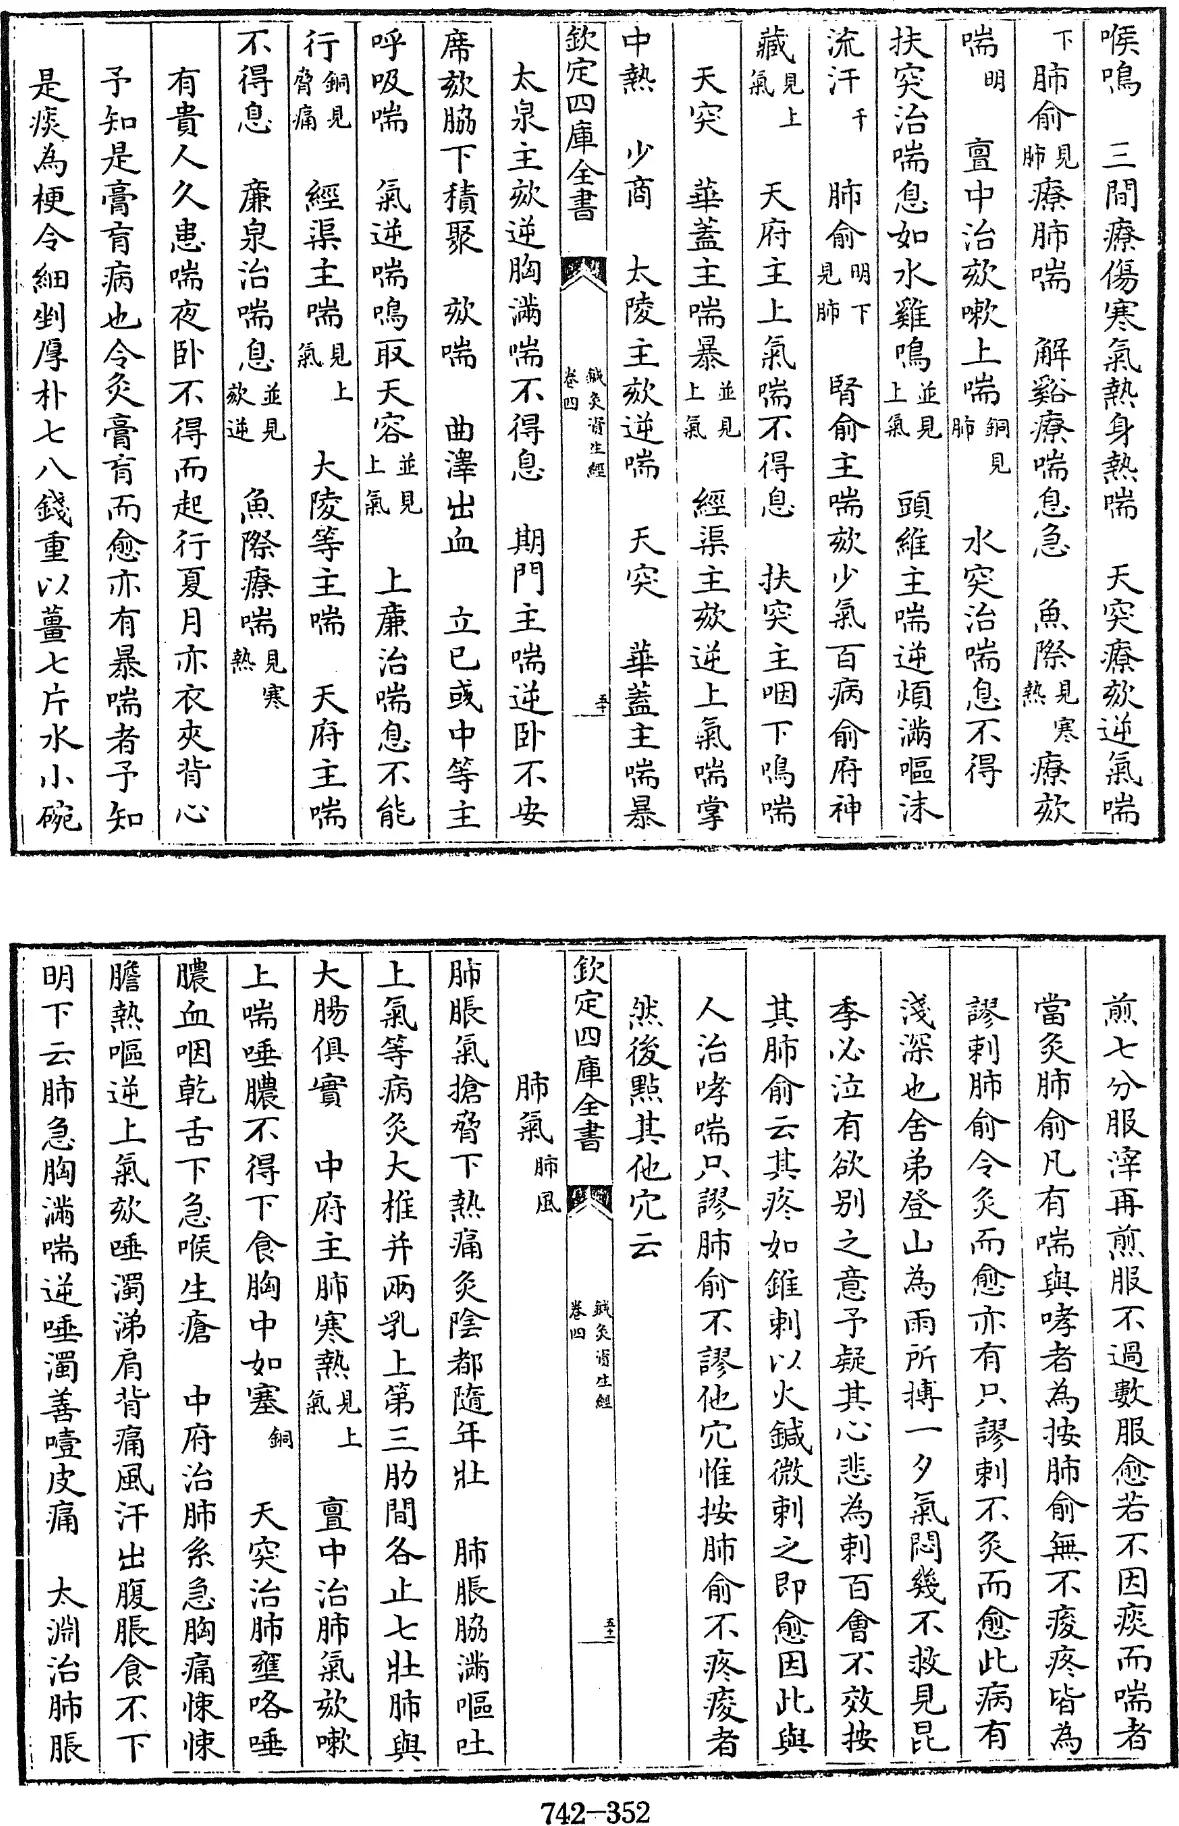 喉鳴　三間療傷寒氣熱身熱喘　天突療欬逆氣喘
下肺俞見肺療肺喘　解谿療喘息急　魚際見寒熱療欬
喘明　亶中治欬嗽上喘銅見肺　水突治喘息不得
扶突治喘息如水雞鳴並見上氣　頭維主喘逆煩滿嘔沫
流汗千　肺俞明下見肺　腎俞主喘欬少氣百病俞府神
藏見上氣　天府主上氣喘不得息　扶突主咽下鳴喘
天突　華蓋主喘暴並見上氣　經渠主欬逆上氣喘掌
中熱　少商　太陵主欬逆喘　天突　華蓋主喘暴
欽定四庫全書　鍼灸資生經卷四　五十
太泉主欬逆胸滿喘不得息　期門主喘逆卧不安
席欬脇下積聚　欬喘　曲澤出血　立已或中等主
呼吸喘　氣逆喘鳴取天容並見上氣　上廉治喘息不能
行銅見脅痛　經渠主喘見上氣　大陵等主喘　天府主喘
不得息　廉泉治喘息並見欬逆　魚際療喘見寒熱
有貴人久患喘夜卧不得而起行夏月亦衣夾背心
予知是膏肓病也令灸膏肓而愈亦有暴喘者予知
是痰為梗令細剉厚朴七八錢重以薑七片水小碗
煎七分服滓再煎服不過數服愈若不因痰而喘者
當灸肺俞凡有喘與哮者為按肺俞無不痠疼皆為
謬刺肺俞令灸而愈亦有只謬刺不灸而愈此病有
淺深也舍弟登山為雨所搏一夕氣悶幾不救見昆
季必泣有欲別之意予疑其心悲為刺百會不效按
其肺俞云其疼如錐刺以火鍼微刺之即愈因此與
人治哮喘只謬肺俞不謬他穴惟按肺俞不疼痠者
然後點其他穴云
欽定四庫全書　鍼灸資生經卷四　五十一
肺氣肺風
肺脹氣搶脅下熱痛灸陰都隨年壯　肺脹脇滿嘔吐
上氣等病灸大椎并兩乳上第三肋間各止七壯肺與
大腸俱實　中府主肺寒熱見上氣　亶中治肺氣欬嗽
上喘唾膿不得下食胸中如塞銅　天突治肺壅咯唾
膿血咽乾舌下急喉生瘡　中府治肺系急胸痛悚悚
膽熱嘔逆上氣欬唾濁涕肩背痛風汗出腹脹食不下
明下云肺急胸滿喘逆唾濁善噎皮痛　太淵治肺脹
742-352